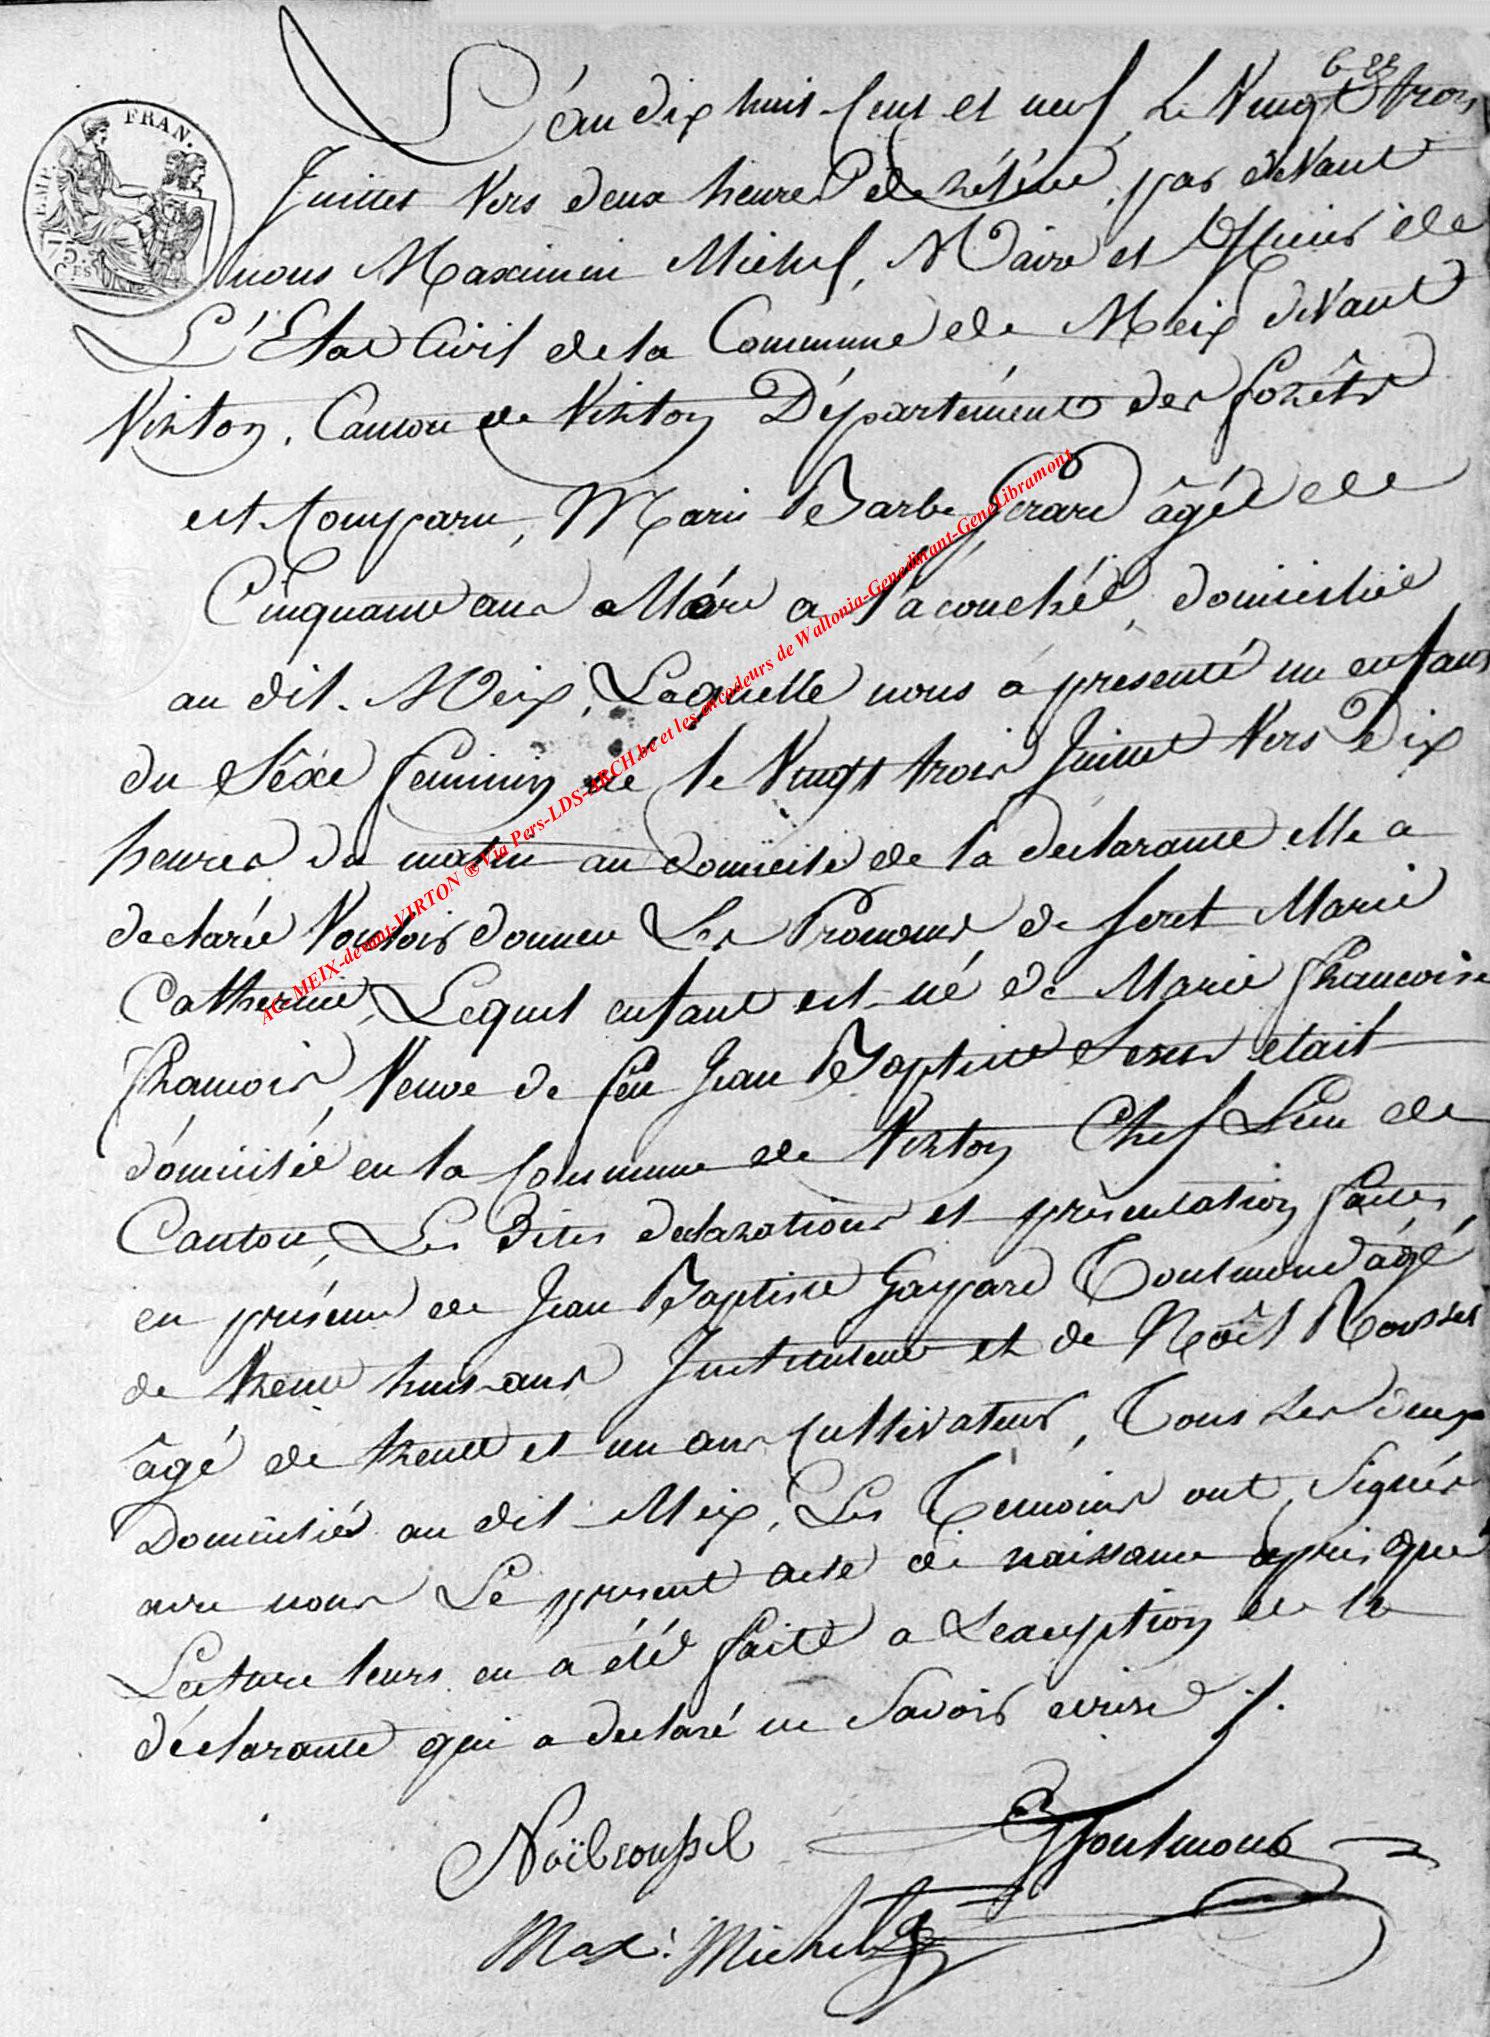 6 23
L'an dix huit Cent et neuf, Le Vingt trois
EMP. FRAN.
75. CES
Juillet Vers deux heures de rélévée, par devant
nous Maximin Michel, Maire et Officier de
L'Etat Civil de la Commune de Meix devant
Virton, Canton de Virton Département des forêts
est Comparu, Marie Barbe Gerard âgée de
Cinquante ans a Mère a l'acouchée, domiciliée
au dit Meix, Laquelle nous a présenté un enfant
du Sêxe feminin née le Vingt trois Juillet Vers Dix
heures du matin au domicile de la declarante elle a
declarée Vouloir donner Les Pronoms de Marie
Catherine, Lequel enfant est né de Marie francoise
francois, Veuve de feu Jean Baptiste était
domiciliée en la Commune de Virton Chef Lieu de
Canton, Les Dites declarations et présentation faites,
en présence de Jean Baptiste Gaspard Toulmond âgé
de trente huit ans Instituteur et de Noël Roussel
âgé de trente et un ans Cultivateur, Tous Les deux
Domiciliés au dit Meix, Les Temoins ont Signés
avec nous Le present acte de naissance après que
Lecture leurs en a été faite a Lexception de la
déclarante qui a declaré ne Savoir ecrire ./.
Noël roussel Toulmond
Max: Michel
AC MEIX-devant-VIRTON ® Via Pers-LDS-ARCH.be et les encodeurs de Wallonia-Genedinant-GeneLibramont